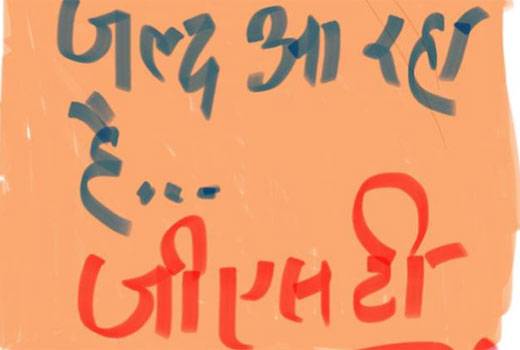 जल्द आ रहा
है...
जीएसटी